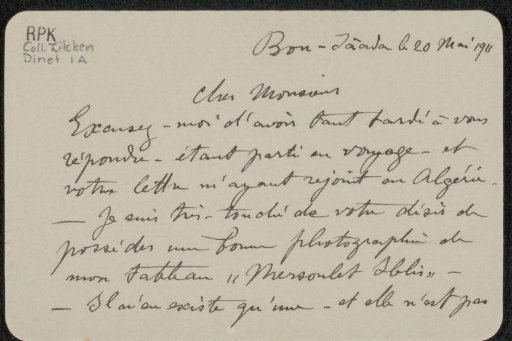 RPK
Coll. Zilcken
Dinet 1A
Bou-Sâada le 20 Mai 1911
Cher Monsieur
Excusez-moi d'avoir tant tardé à vous
répondre - étant parti en voyage - et
votre lettre m'ayant rejoint en Algérie -
- Je suis très-touché de votre désir de
posséder une bonne photographie de
mon tableau „Mersoulet Iblis" -
- Il n'en existe qu'une - et elle n'est pas